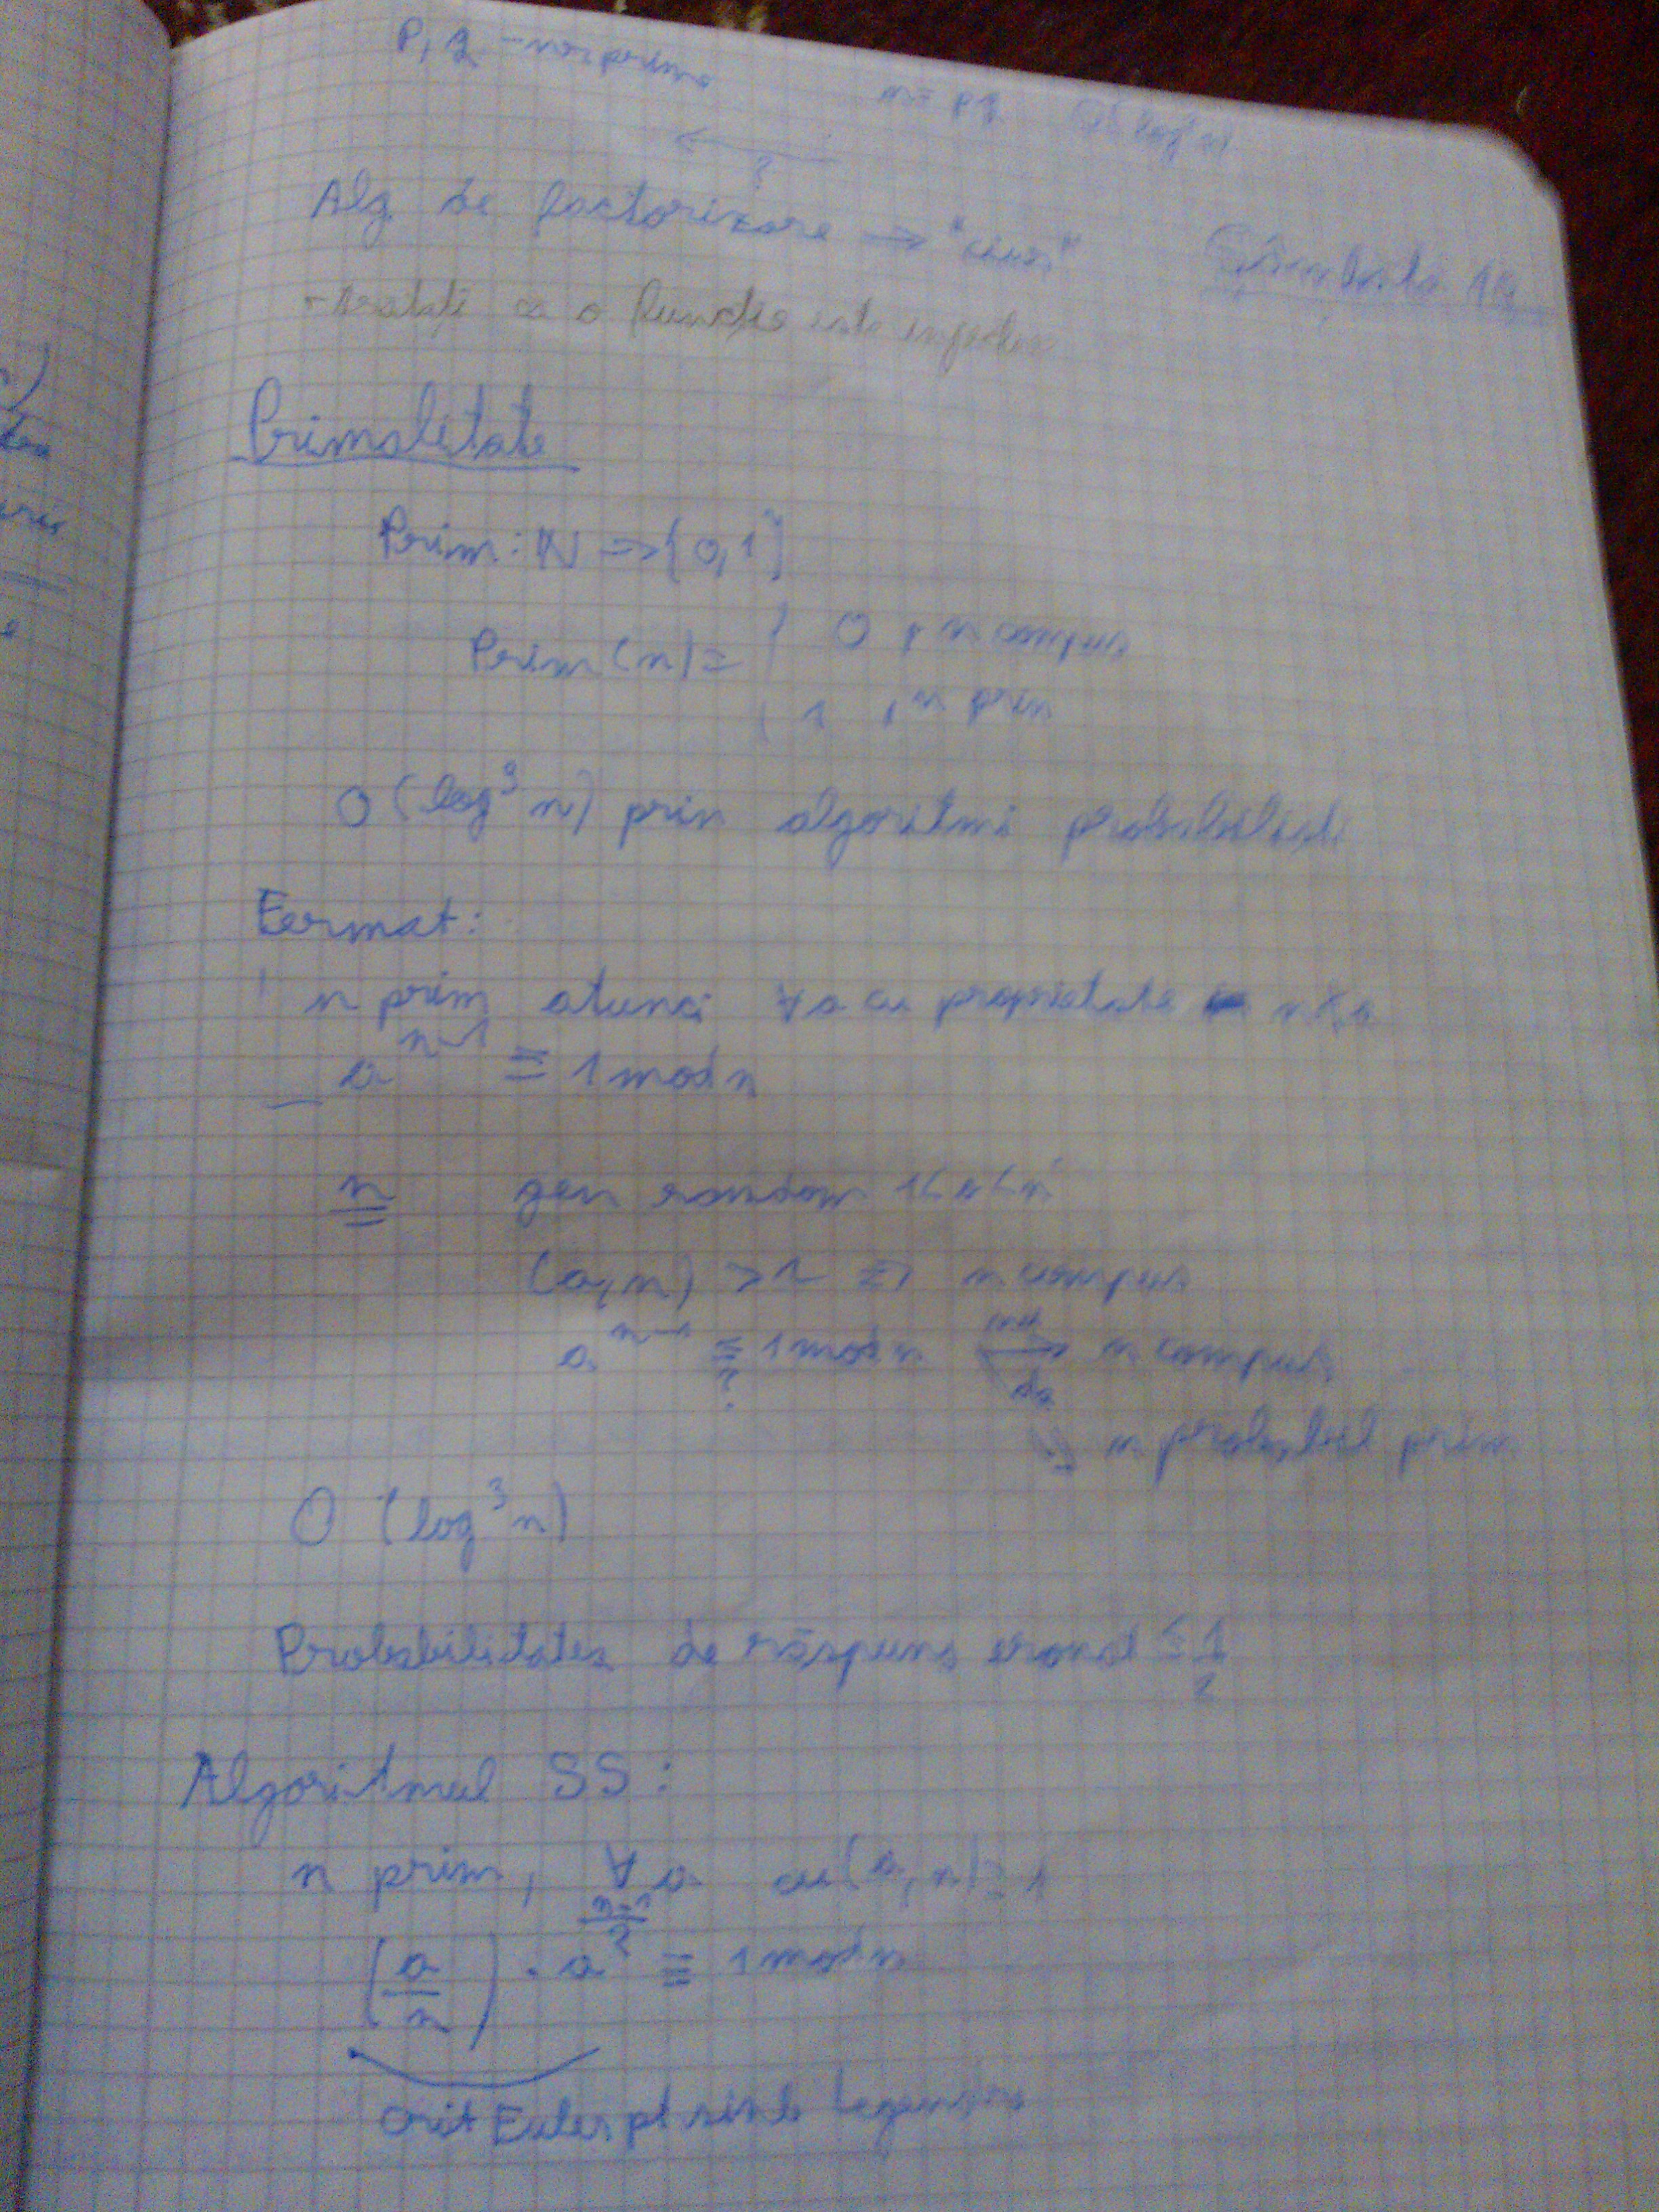 p, q - nr prime n = pq O(log² n)
← ?
Alg. de factorizare → "
- Arătați că o funcție este injectivă
Primalitate
Prim: ℕ → {0,1}
Prim(n) = { 0, n compus
1, n prim
O(log³ n) prin algoritmi probabiliști
Fermat:
n prim atunci ∀a cu proprietate n∤a
a^(n-1) ≡ 1 mod n
n gen random 1<a<n
(a,n) >1 => n compus
a^(n-1) ≡ 1 mod n nu → n compus
?
da
=> n probabil prim
O (log³ n)
Probabilitatea de răspuns eronat ≤ 1/2
Algoritmul SS:
n prim, ∀a cu (a,n)=1
(a/n) · a^((n-1)/2) ≡ 1 mod n
crit Euler pt simb Legendre